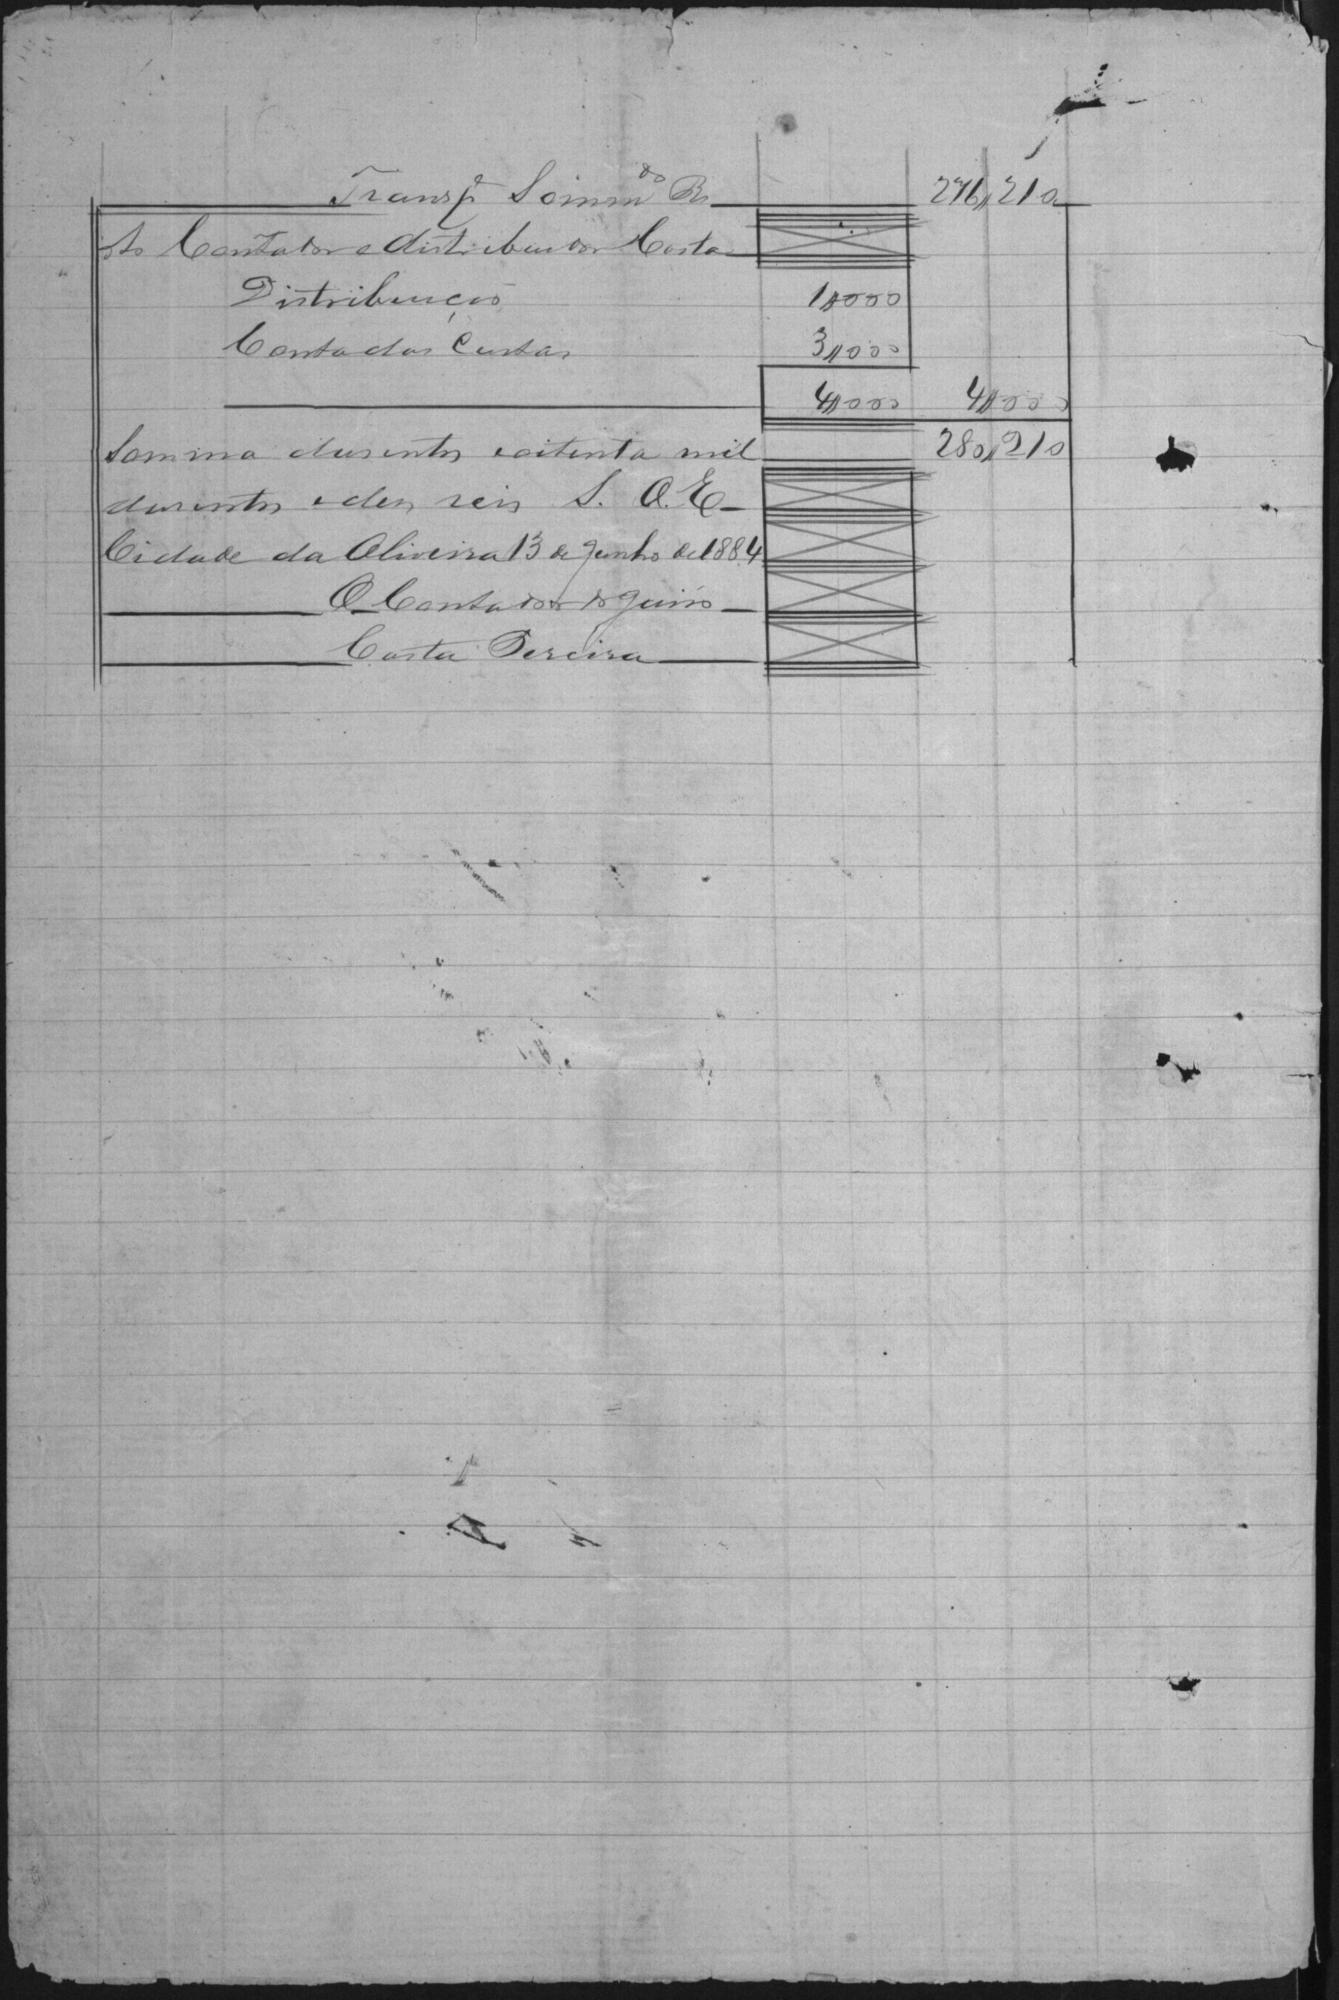 Transpe Sommdo Rs 276,,210
Ao Contador e distribuidor Costa
Distribuiçaõ 1,,000
Conta das Custas 3,,000
4,,000 4,,000
Somma dusentos e oitenta mil 280,,210
dusentos e dez reis S. O. E.
Cidade da Oliveira 13 de Junho de 1884
O Contador do Juiso
Costa Pereira